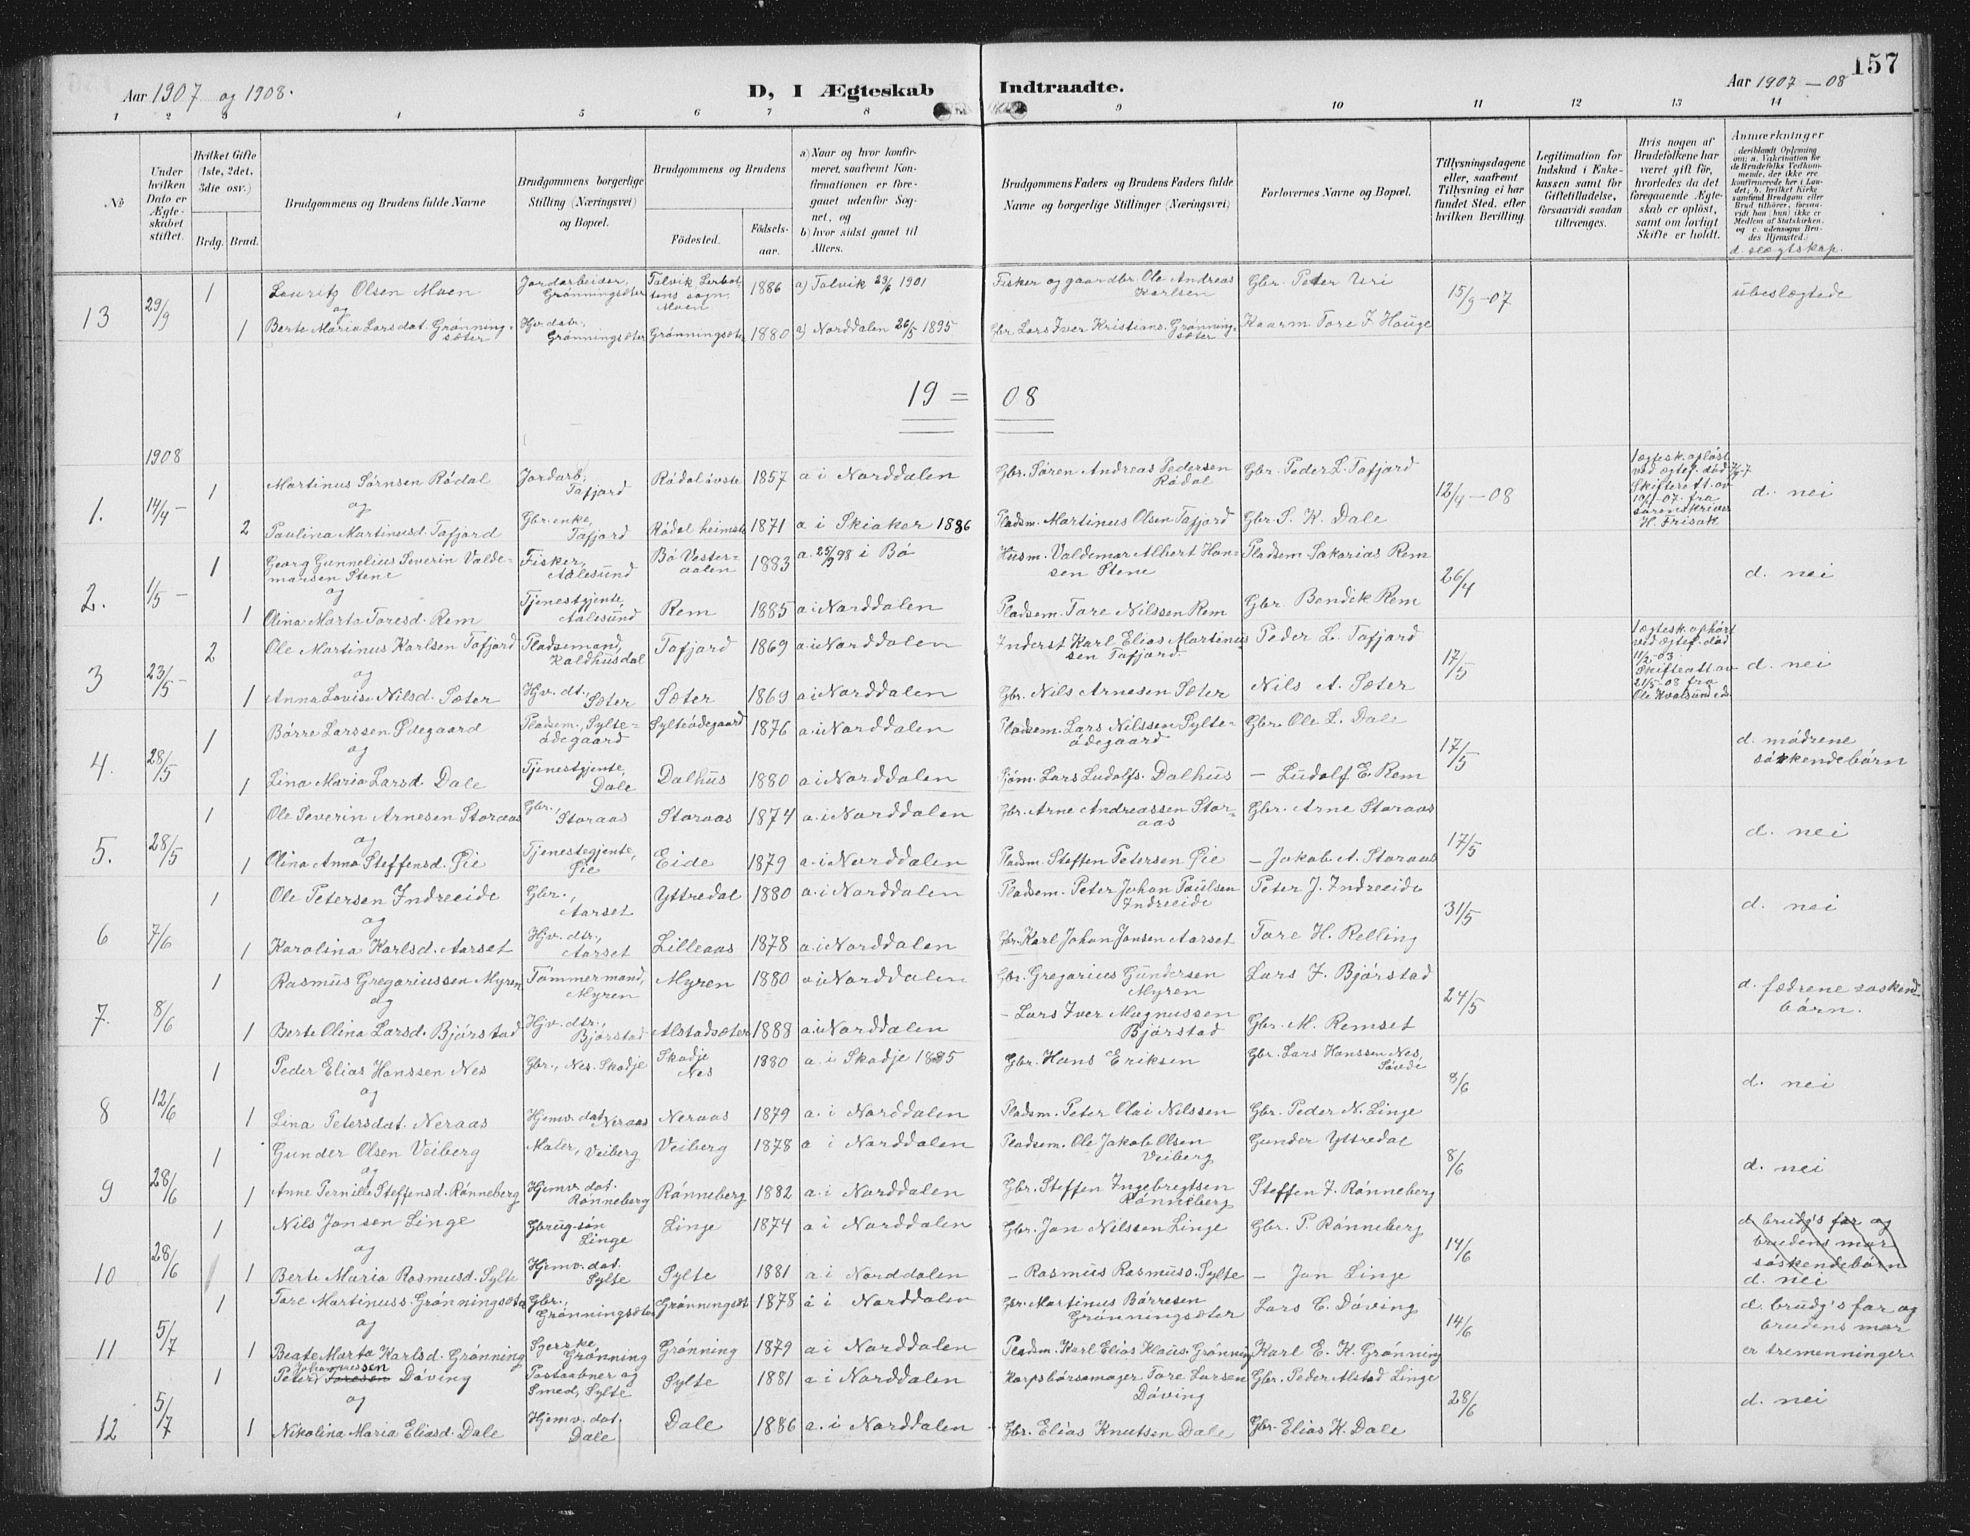 157
Aar 1907 og 1908.
D, I Ægteskab Indtraadte.
Aar 1907 — 08
1 2 3 4 5 6 7 8 9 10 11 12 13 14
№
Under hvilken Dato er Ægteskabet stiftet.
Hvilket Gifte (1ste, 2det, 3die osv.)
Brdg. Brud.
Brudgommens og Brudens fulde Navne
Brudgommens borgerlige Stilling (Næringsvei) og Bopæl.
Brudgommens og Brudens
Fødested. Fødselsaar.
a) Naar og hvor konfirmeret, saafremt Konfirmationen er foregaaet udenfor Sognet, og
b) hvor sidst gaaet til Alters.
Brudgommens Faders og Brudens Faders fulde Navne og borgerlige Stillinger (Næringsvei)
Forlovernes Navne og Bopæl.
Tillysningsdagene eller, saafremt Tillysning ei har fundet Sted, efter hvilken Bevilling.
Legitimation for Indskud i Enkekassen samt for Giftetilladelse, forsaavidt saadan tiltrænges.
Hvis nogen af Brudefolkene har været gift før, hvorledes da det foregaaende Ægteskab er opløst, samt om lovligt Skifte er holdt.
Anmærkninger
(deriblandt Oplysning om: a. Vakcination for de Brudefolks Vedkommende, der ikke ere konfirmerede her i Landet; b. hvilket Kirkesamfund Brudgom eller Brud tilhører, forsaavidt han (hun) ikke er Medlem af Statskirken, og c. udensogns Brudes Hjemsted.)
d slægtskap.
13 29/9 1 Lauritz Olsen Moen Jordarbeider, Grønningsæter Talvik, Moen 1886 a) Talvik 23/6 1901 Fisker og gaardbr. Ole Andreas Karlsen Gbr. Peter Uri 15/9-07 ubeslægtede
og
1 Berte Maria Larsdat. Grønningsæter Hjv. datr., Grønningsæter Grønningsæter 1880 a) Norddalen 26/5 1895 Gbr. Lars Iver Kristians. Grønningsæter Kaarm. Tore J. Hauge
19 = 08
1908
1. 14/4 - 1 Martinus Sørnsen Rødal Jordarb., Tafjord Rødal øvste 1857 a i Norddalen Gbr. Søren Andreas Pedersen Rødal Gbr. Peder L. Tafjord 12/4-08 d. nei
og
2 Paulina Martinusd. Tafjord Gbr. enke, Tafjord Rødal heimste 1871 a i Skiaker 1886 Pladsm. Martinus Olsen Tafjord Gbr. S. K. Dale
1 ægtesk. opløst ved ægtef. død Skifteratt. av fra sorenskriver H. Frisak
2. 1/5 - 1 Georg Gunnelius Severin Valdemarsen Stene Fisker, Aalesund Bø Vesteraalen 1883 a. 25/9 98 i Bø Husm. Valdemar Albert Hansen Stene Pladsem Sakarias Rem 26/4 d. nei
og
1 Olina Marta Toresd. Rem Tjenestjente, Aalesund Rem 1885 a i Norddalen Pladsem. Tore Nilssen Rem Gbr. Bendik Rem
3 23/5 - 2 Ole Martinus Karlsen Tafjord Pladsemand, Kaldhusdal Tafjord 1869 a i Norddalen Inderst Karl Elias Martinussen Tafjord. Peder L. Tafjord 17/5 d. nei
og
1 Anna Lovise Nilsd. Sæter Hjv. dt. Sæter Sæter 1869 a i Norddalen Gbr. Nils Arnesen Sæter Nils A. Sæter
1 ægtesk. ophørt ved ægtef. død 11/2-03. Skifteatt. av 21/5-08 fra Ole Kvalsund
4. 28/5 1 Børre Larssen Ødegaard Pladsem., Sylteødegaard Sylteødegaard 1876 a i Norddalen Pladsem. Lars Nilssen Sylteødegaard Gbr. Ole L. Dale 17/5 d. mødrene søskendebørn
og
1 Lina Maria Larsd. Dale Tjenestjente, Dale Dalhus 1880 a i Norddalen Lars Ludolfs. Dalhus — Ludolf E. Rem
5. 28/5 1 Ole Severin Arnesen Storaas Gbr., Storaas Storaas 1874 a. i Norddalen Gbr. Arne Andreassen Storaas Gbr. Arne Storaas 17/5 d. nei
og
1 Olina Anna Steffensd. Øie Tjenestegjente, Øie Eide 1879 a. i Norddalen Pladsm. Steffen Petersen Øie — Jakob A. Storaas
6 7/6 1 Ole Petersen Indreeide Gbr., Aarset Yttredal 1880 a. i Norddalen Pladsem. Peter Johan Paulsen Indreeide Peter J. Indreeide 31/5 d. nei
og
1 Karolina Karlsd. Aarset Hjv. dtr., Aarset Lilleaas 1878 a. i Norddalen Gbr. Karl Johan Jonsen Aarset Tore H. Relling
7. 8/6 1 Rasmus Gregoriussen Myren Tømmermand, Myren Myren 1880 a i Norddalen Gbr. Gregorius Gundersen Myren Lars J. Bjørstad 24/5 d. fædrene søskendbørn.
og
1 Berte Olina Larsd. Bjørstad Hjv. dtr. Bjørstad Alstadsæter 1888 a i Norddalen — Lars Iver Magnussen Bjørstad Gbr. M. Remset
8 12/6 1 Peder Elias Hanssen Nes Gbr., Nes, Skodje Skodje Nes 1880 a. i Skodje 1885 Gbr. Hans Eriksen Gbr. Lars Hanssen Nes, 8/6 d. nei
og
1 Lina Petersdat. Neraas Hjemv. dat. Neraas Neraas 1879 a. i Norddalen Pladsm. Peter Olai Nilssen Gbr. Peder N. Linge
9 28/6 1 Gunder Olsen Veiberg Maler, Veiberg Veiberg 1878 a i Norddalen Pladsem. Ole Jakob Olsen Veiberg Gunder Yttredal 8/6 d. nei
og
1 Anne Pernille Steffensd. Rønneberg Hjemv. dat. Rønneberg Rønneberg 1882 a. i Norddalen Gbr. Steffen Ingebregtsen Rønneberg Steffen J. Rønneberg
10 28/6 1 Nils Jonsen Linge Gbrug. søn Linge Linge 1874 a i Norddalen Gbr. Jon Nilssen Linge Gbr. P. Rønneberg 14/6 d. brudg's far og brudens mor søskendebørn
og
1 Berte Maria Rasmusd. Sylte Hjemv. dat. Sylte Sylte 1881 a i Norddalen — Rasmus Rasmuss. Sylte — Jon Linge d. nei
11 5/7 1 Tore Martinuss. Grønningsæter Gbr., Grønningsæter Grønningsæt 1878 a i Norddalen Gbr. Martinus Børresen Grønningsæter Lars C. Døving 14/6 d. brudg's far og brudens mor er tremenninger
og
1 Beate Marta Karlsd. Grønning Grønning Grønning 1879 a i Norddalen Pladsm. Karl Elias Klaus. Grønning Karl E. K. Grønning
12 5/7 1 Peter Johannessen Toresen Døving Postaabner og Smed, Sylte Sylte 1881 a i Norddalen Korpsbørsemager Tore Larsen Døving Gbr. Peder Alstad Linge 28/6 d. nei
og
1 Nikolina Maria Eliasd. Dale Hjemv. dat. Dale Dale 1886 a. i Norddalen Gbr. Elias Knutsen Dale Gbr. Elias K. Dale